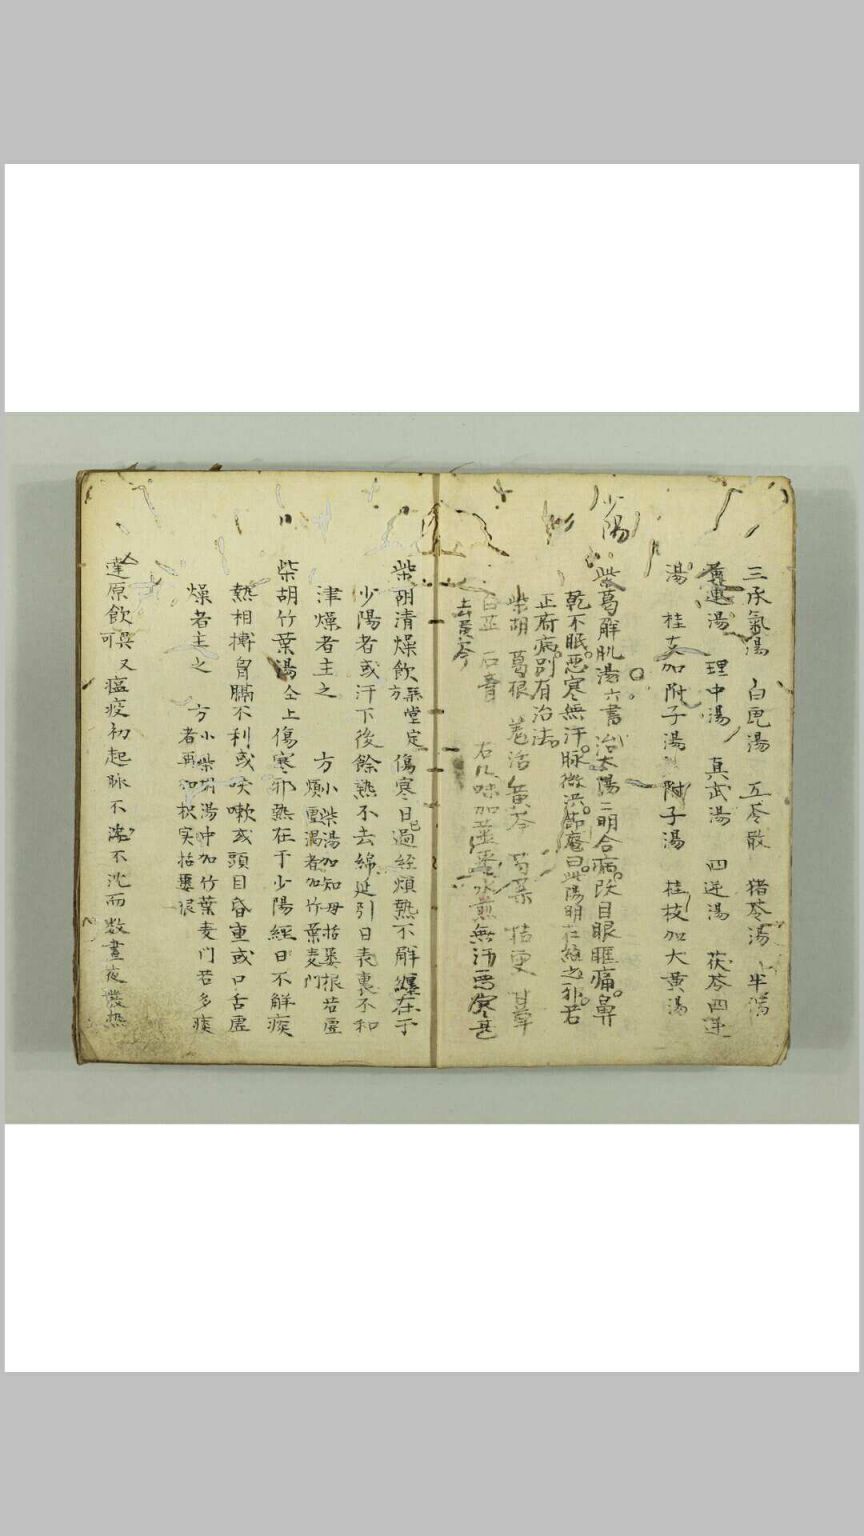 三承氣湯 白虎湯 五苓散 猪苓湯 半湯
連湯 理中湯 真武湯 四逆湯 茯苓四逆
湯 桂支加附子湯 附子湯 桂枝加大黄湯
少陽
柴葛解肌湯六書 治太陽二明合病頭目眼眶痛鼻
乾不眠惡寒無汗脉微洪節庵曰此陽明在經之邪若
正府病別有治法
柴胡 葛根 羌活 黄芩 芍藥 桔更 甘草
白芷 石膏 右八味加姜棗水煎無汗惡寒甚
去黄芩
柴胡清燥飲吾堂定方 傷寒日已過經煩熱不解纏在于
少陽者或汗下後餘熱不去綿延引日表裏不和
津燥者主之 方小柴湯加知母括蔞根若虛
煩虛渴者加竹葉麦門
柴胡竹葉湯仝上傷寒邪熱在于少陽經日不解痰
熱相搏胷膈不利或咳嗽或頭目昏重或口舌虛
燥者主之 方小柴胡湯中加竹葉麦門若多痰
者再加枳実括蔞根
達原飲又可 瘟疫初起脉不浮不沈而数晝夜發热